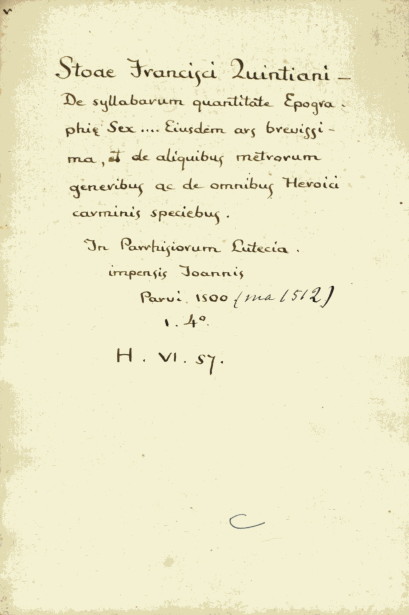 Stoae Francisci Quintiani —
De syllabarum quantitate Epogra-
phię Sex .... Eiusdem ars brevissi-
ma, et de aliquibus metrorum
generibus ac de omnibus Heroici
carminis speciebus.
In Parrhisiorum Lutecia.
impensis Joannis
Parvi 1500 (ma 1512)
1. 4º.
H. VI. 57.
C